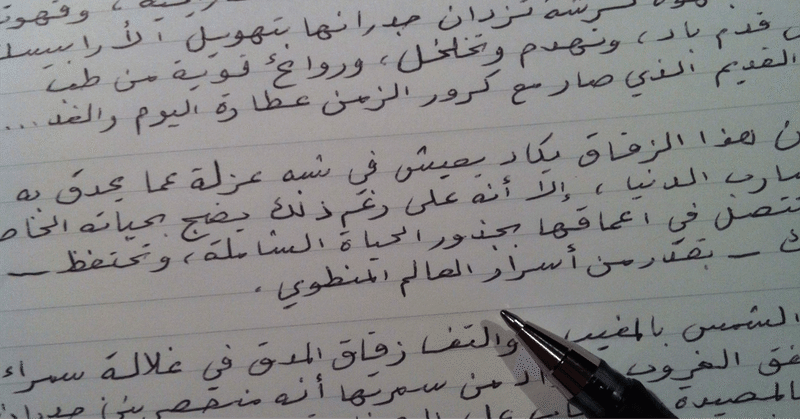 تزدان جدرانها بتهويل الأرابيسك
قدم باد، وتهدم وتخلخل، وروائح قوية من طب
القديم الذي صار مع كرور الزمن عطارة اليوم والغد ...
هذا الزقاق يكاد يعيش في شبه عزلة عما يحدق به
الدنيا، إلا أنه على رغم ذلك يضج بحياته
تتصل في أعماقها بجذور الحياة الشاملة، وتحتفظ -
- بقدر من أسرار العالم المنطوي.
الشمس بالمغيب والتف زقاق المدق في غلالة سمراء
الغروب من سمرتها أنه منحصر بين